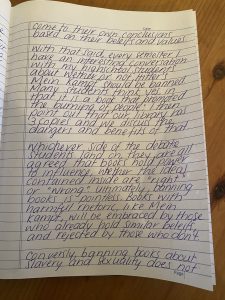 come to their own conclusions
based on their beliefs and values.
With that said, every semester I
have an interesting conversation
with my transchool students
about whether or not
Mein Kampf should be banned.
Many students think yes in
that it is a book that promoted
the burning of people. I then
point out that our library has
3 copies and we discuss the
dangers and benefits of that.
Whichever side of the debate
students land on, they are all
agreed that books hold power
to influence, whether the ideas
contained inside are "right"
or "wrong". Ultimately, banning
books is pointless. Books with
harmful rhetoric, like Mein
Kampf, will be embraced by those
who already hold similar beliefs,
and rejected by those who don't.
Conversly, banning books about
slavery and sexuality does not